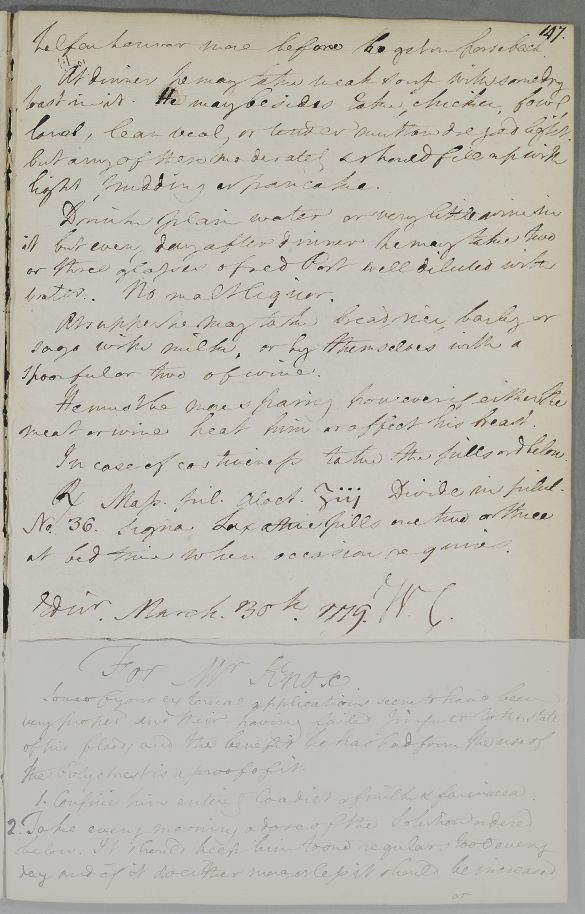 147.
half an hour or more before he gets on horseback.
At dinner he may take weak soup with some dry
toast in it. He may besides take chicken, fowl,
lamb, lean veal, or tender mutton
but any of them moderately & should fill up with
light pudding or pancake.
Drink plain water or very little wine in
it but every day after dinner he may take two
or three glasses of red Port well diluted with
water. No malt liquor.
At supper he may take bread, rice, barley or
sago with milk, or by themselves with a
spoonful or two of wine.
He must be more sparing however if either the
meat or wine heat him or affect his breast.
In case of costiveness take the pills ord. below.
℞ Mass. pil. Ʒiij Divide in pilul.
No. 36. Signa Laxative pills one two or three
at bed time when occasion requires.
Edinr. March 30th. 1779. W. C.
For Mr Knox
Some of your external applications seem to have been
very proper and their having failed I impute to the state
of his blood; and the benefit he has had from the use of
the Polychrest is a proof of it.
1. Confine him entirely to a diet of milk & farinacea.
2. Take every morning a dose of the Solution ordered
below. It should keep him to one regular stool every
day and if it do either more or less it should be increased
or